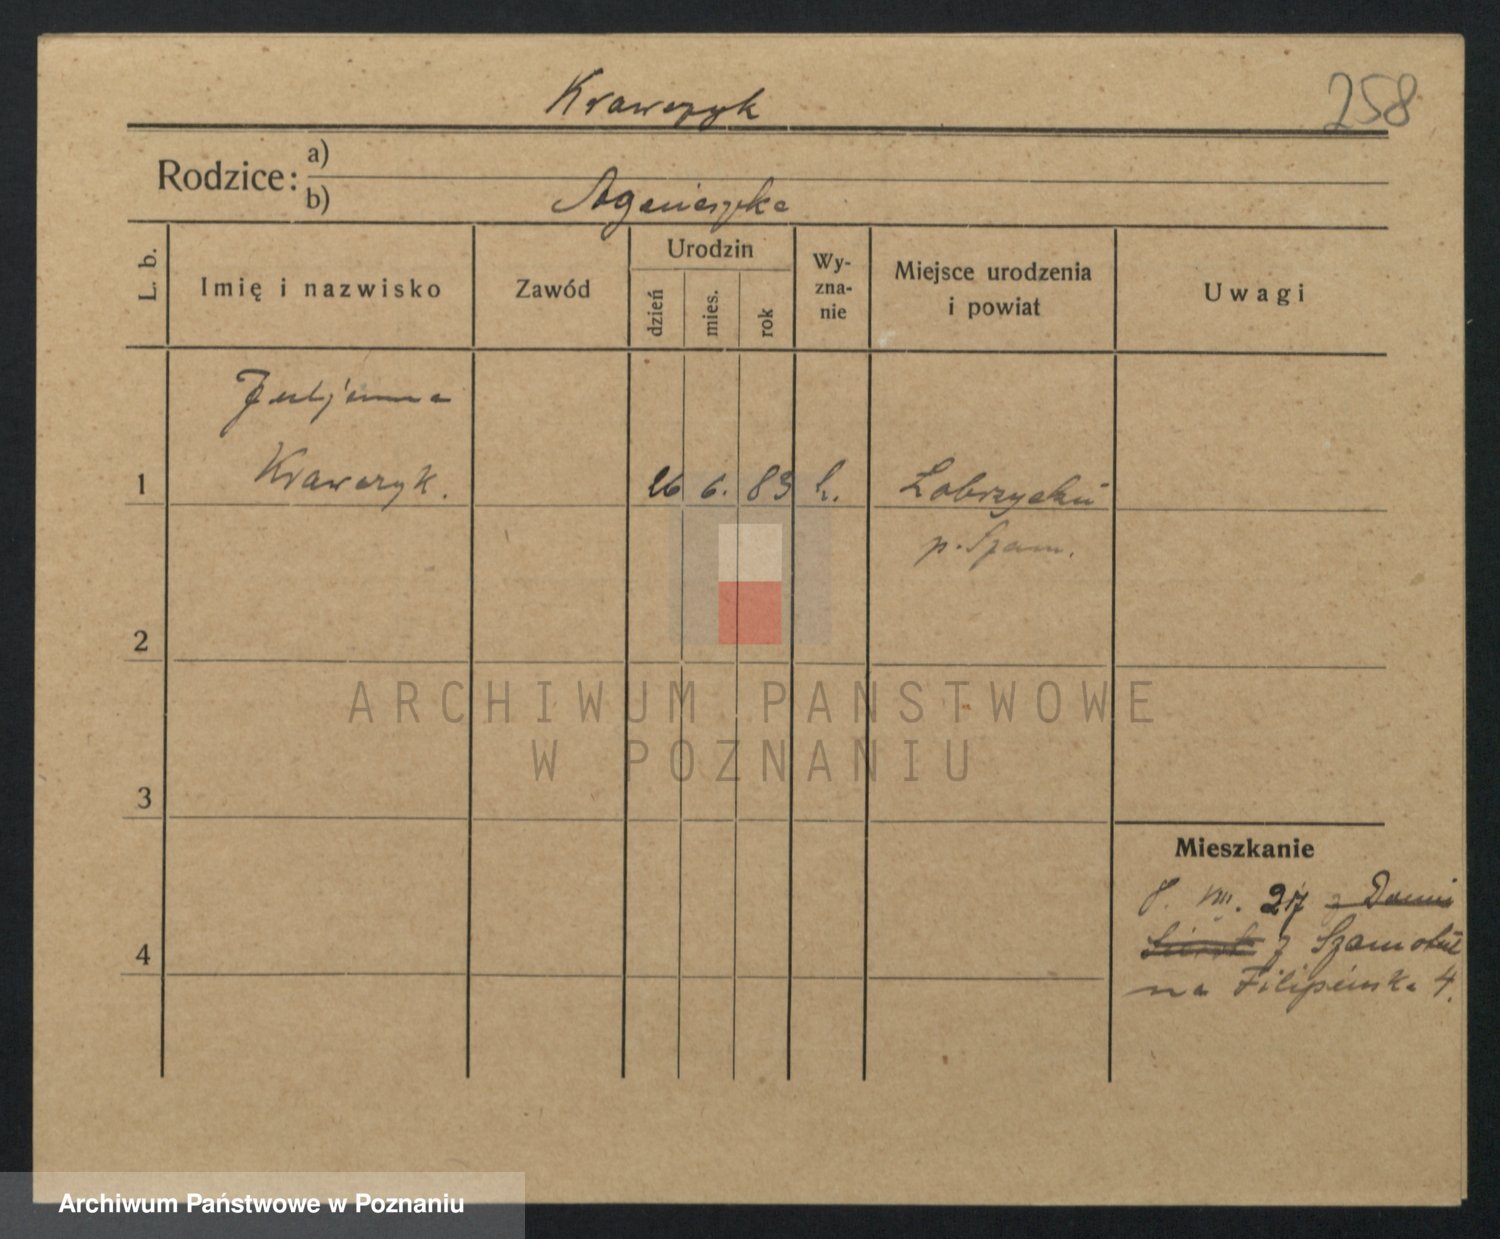 Krawczyk
258
Rodzice:
a)
b) Agnieszka
L. b.
Imię i nazwisko
Zawód
Urodzin
dzień
mies.
rok
Wy-
zna-
nie
Miejsce urodzenia
i powiat
Uwagi
Juljanna
1 Krawczyk. 26 6. 83 k.
p. Szam.
2
3
4
ARCHIWUM PAŃSTWOWE
W POZNANIU
Mieszkanie
VIII. 27
z Szamotuł
na Filipińska 4.
Archiwum Państwowe w Poznaniu